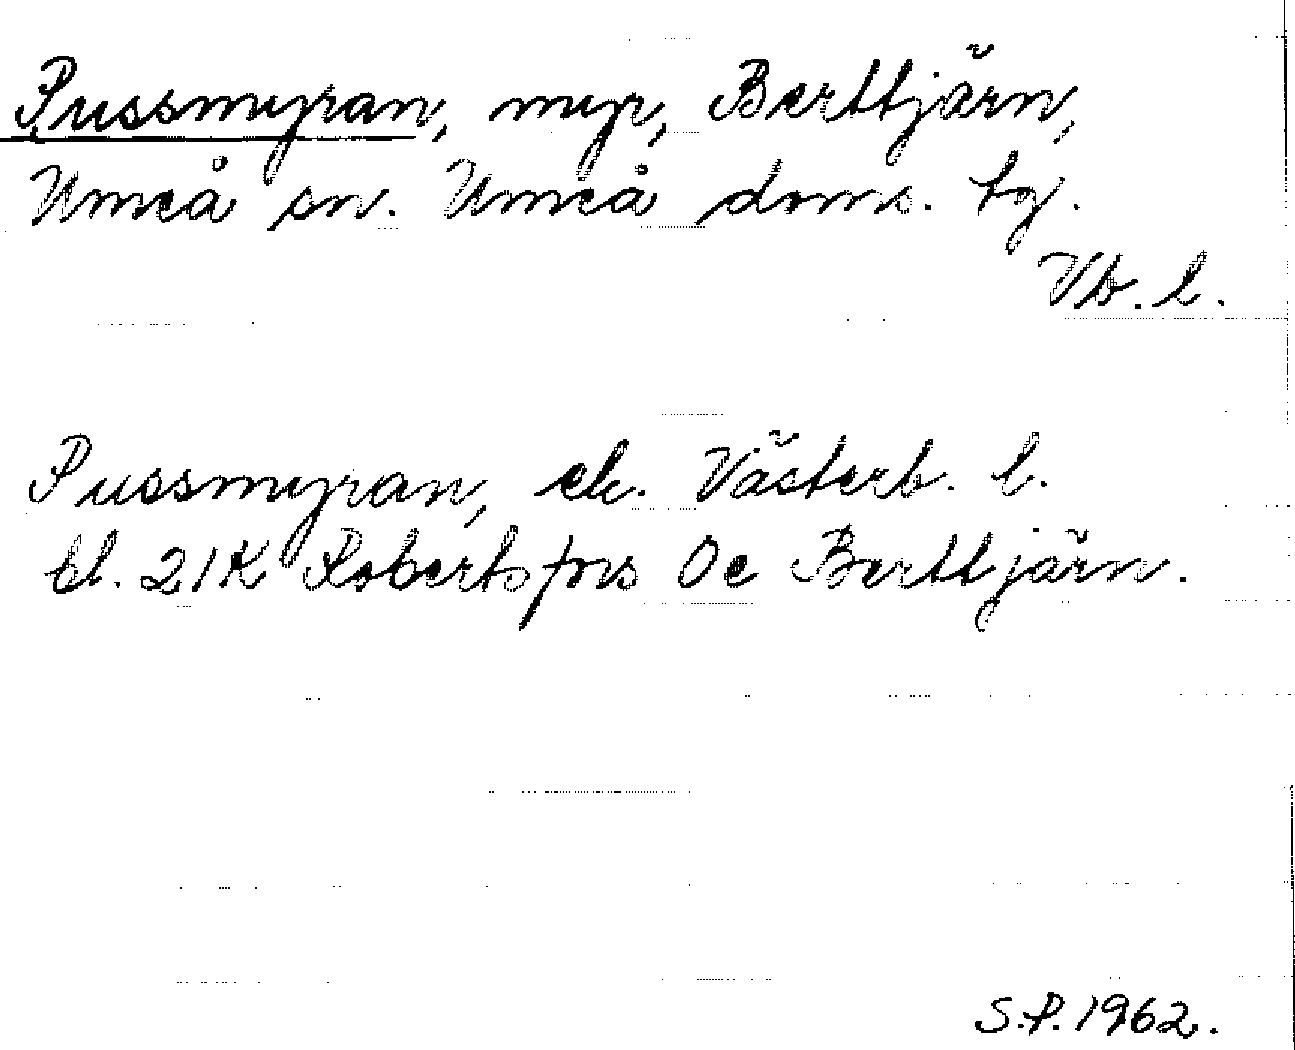 Pussmyran, myr, Berttjärn,
Umeå sn. Umeå doms. tg.
Vb. l.
Pussmyran, ek. Västerb. l.
bl. 21K Robertsfors 0e Berttjärn.
S.P. 1962.